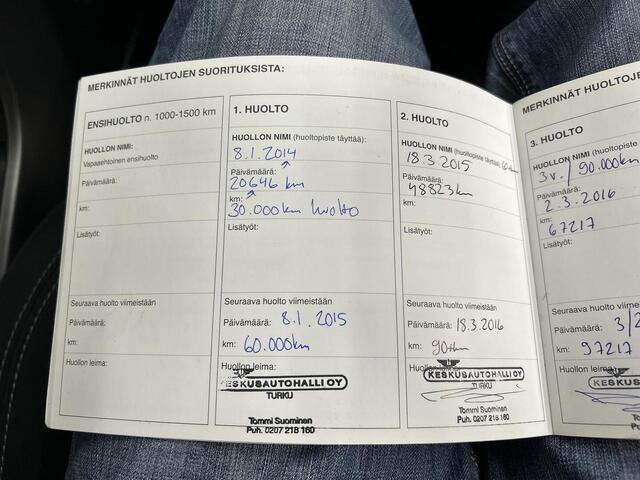 MERKINNÄT HUOLTOJEN SUORITUKSISTA:
ENSIHUOLTO n. 1000-1500 km
HUOLLON NIMI:
Vapaaehtoinen ensihuolto
Päivämäärä:
km:
Lisätyöt:
Seuraava huolto viimeistään
Päivämäärä:
km:
Huollon leima:
1. HUOLTO
HUOLLON NIMI (huoltopiste täyttää):
8.1.2014
Päivämäärä:
20646 km
km:
30.000km huolto
Lisätyöt:
Seuraava huolto viimeistään
Päivämäärä: 8.1.2015
km: 60.000km
Huollon leima:
KESKUSAUTOHALLI OY
TURKU
Tommi Suominen
Puh. 0207 218 160
2. HUOLTO
HUOLLON NIMI (huoltopiste täyttää)
18.3.2015
Päivämäärä:
48823km
km:
Lisätyöt:
Seuraava huolto viimeistään
Päivämäärä: 18.3.2016
km:
KESKUSAUTOHALLI OY
TURKU
Tommi Suominen
Puh. 0207 218 160
MERKINNÄT HUOLTOJE
3. HUOLTO
HUOLLON NIMI (huoltopiste
3v. / 90.000km
Päivämäärä:
2.3.2016
km:
67217
Lisätyöt:
Seuraava huolto viimeistään
Päivämäärä: 3/2
km: 97217
Huollon leima:
KESKUSAU
Tommi
Puh. 02